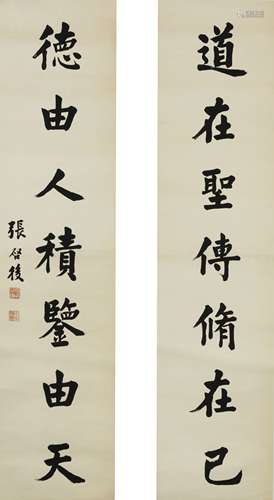 道在聖傳脩在己
德由人積鑒由天
張啓後